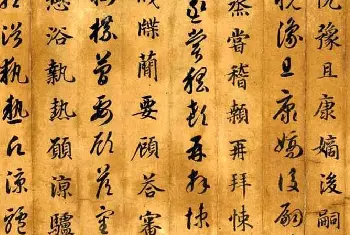 悅豫且康嫡後嗣
悅豫且康嫡後嗣
蒸嘗稽顙再拜悚
蒸嘗稽顙再拜悚
牋牒簡要顧答審
牋牒簡要顧答審
想浴執熱願涼驢
想浴執熱願涼驢